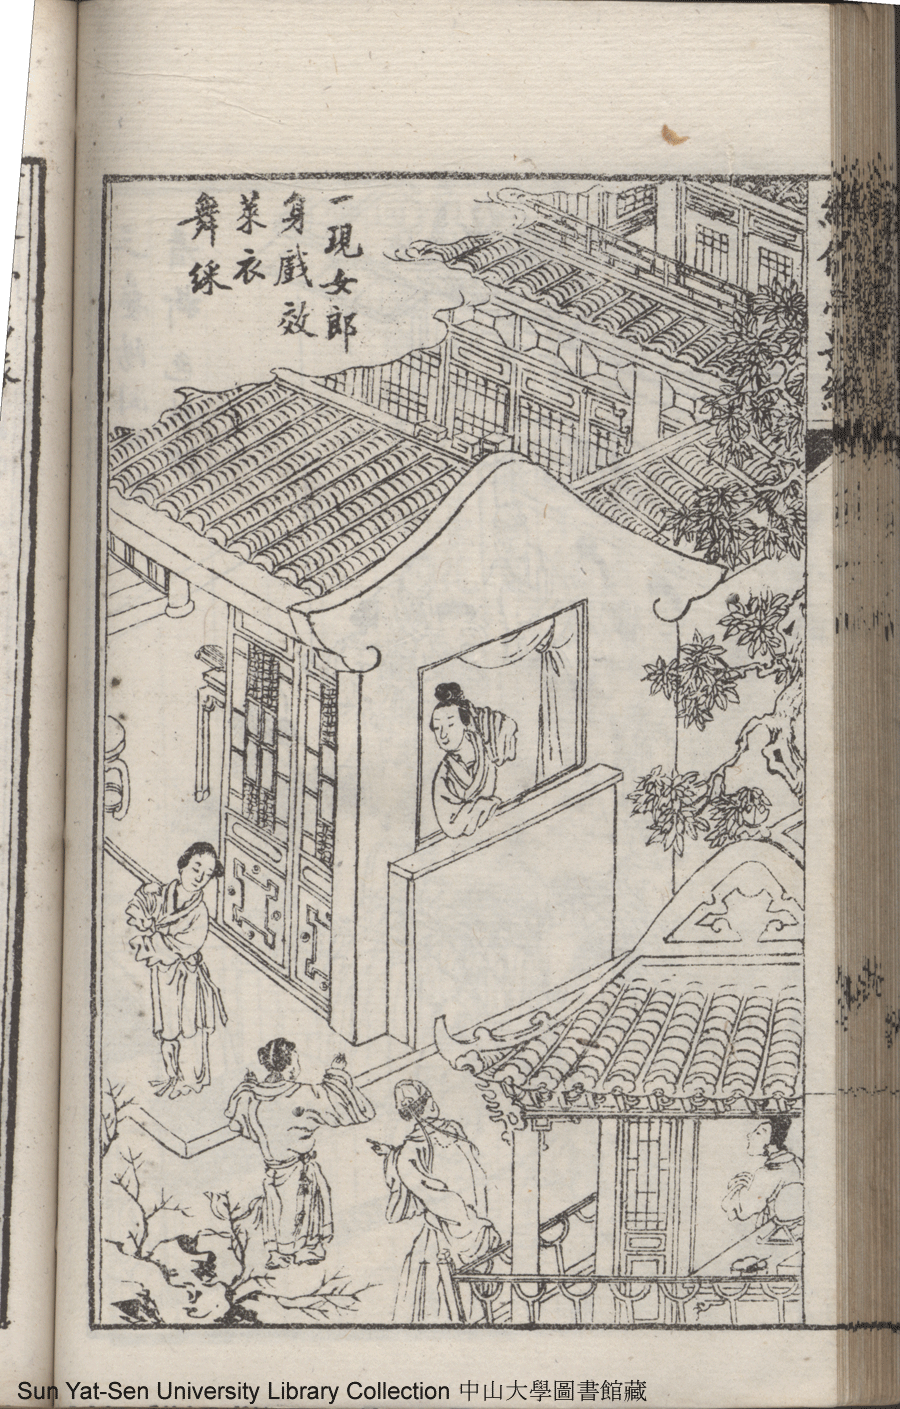 一現女郎
身戲效
萊衣
舞綵
Sun Yat-Sen University Library Collection 中山大學圖書館藏